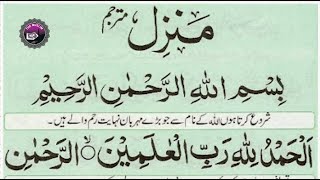 منزل مترجم
بِسْمِ اللهِ الرَّحْمٰنِ الرَّحِيْمِ
شروع کرتا ہوں اللہ کے نام سے جو بڑے مہربان نہایت رحم والے ہیں۔
اَلْحَمْدُ لِلّٰهِ رَبِّ الْعٰلَمِيْنَ ۙ الرَّحْمٰنِ